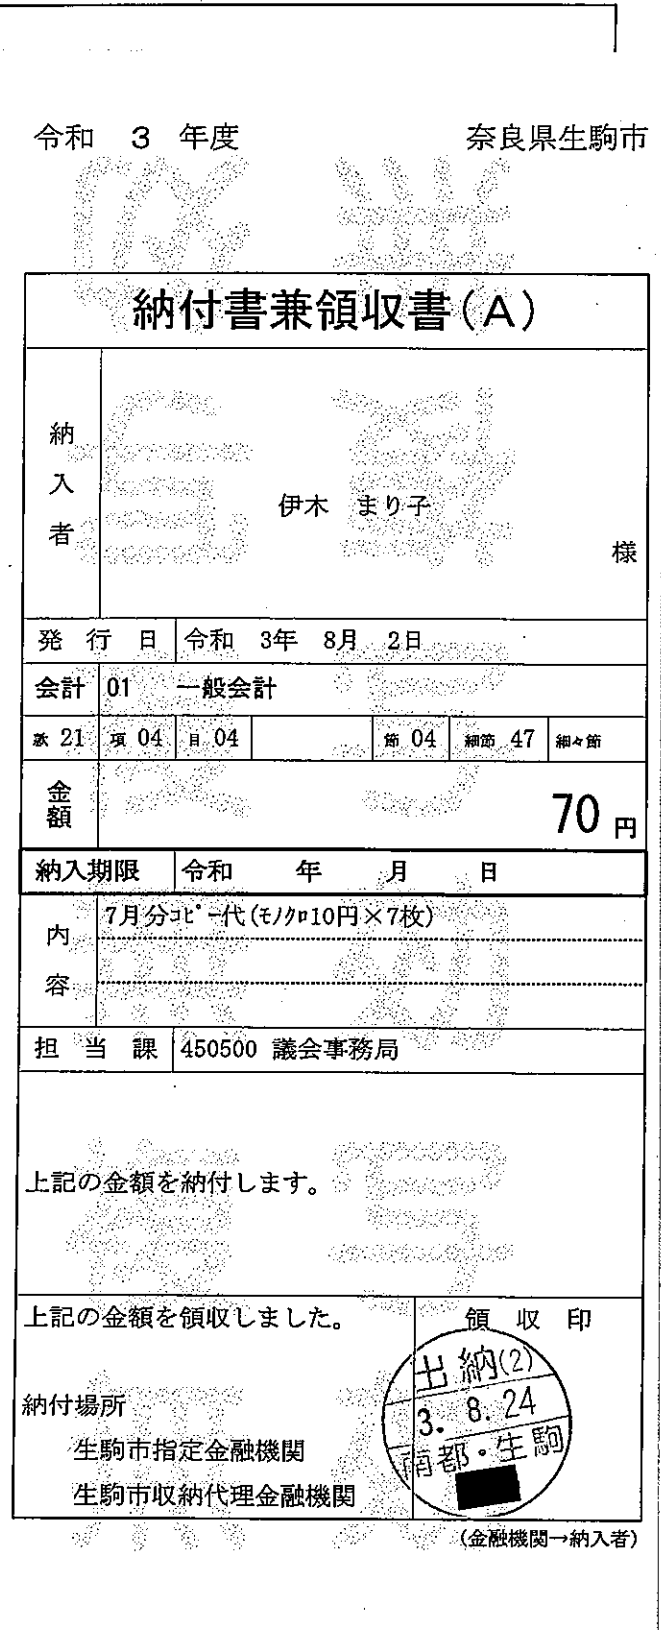 令和 3 年度 奈良県生駒市
納付書兼領収書(A)
納入者
伊木 まり子
様
発行日 令和 3年 8月 2日
会計 01 一般会計
款 21 項 04 目 04 節 04 細節 47 細々節
金額 70 円
納入期限 令和 年 月 日
内容 7月分ｺﾋﾟｰ代(ﾓﾉｸﾛ10円×7枚)
担当課 450500 議会事務局
上記の金額を納付します。
上記の金額を領収しました。 領収印
出納(2)
3. 8. 24
南都・生駒
納付場所
生駒市指定金融機関
生駒市収納代理金融機関
(金融機関→納入者)